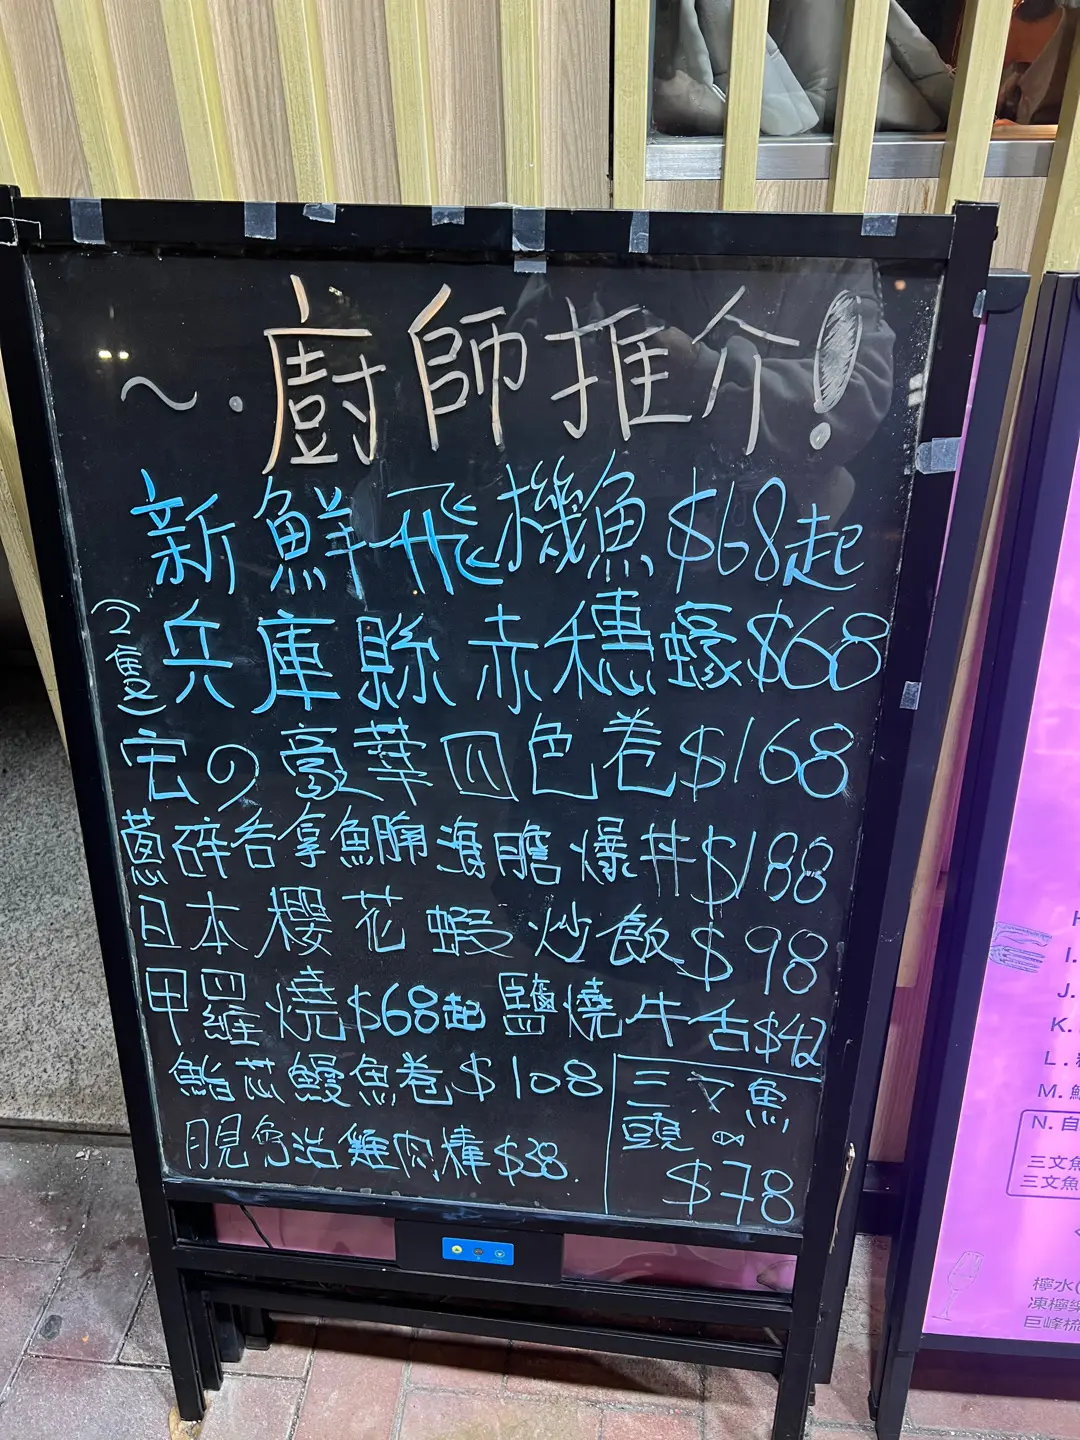 ~·廚師推介!
新鮮飛機魚$68起
(2隻)兵庫縣赤穗蠔$68
宏の豪華四色卷$168
蔥碎吞拿鯛腩海膽爆丼$188
日本櫻花蝦炒飯$98
甲羅燒$68起 鹽燒牛舌$42
鮨芯鰻魚卷$108
月見角治雞肉棒$38
三文魚
頭
$78
H
I.
J.
K.
L.
M.
N. 自
三文魚
三文魚
檸水(
凍檸樂
巨峰梳